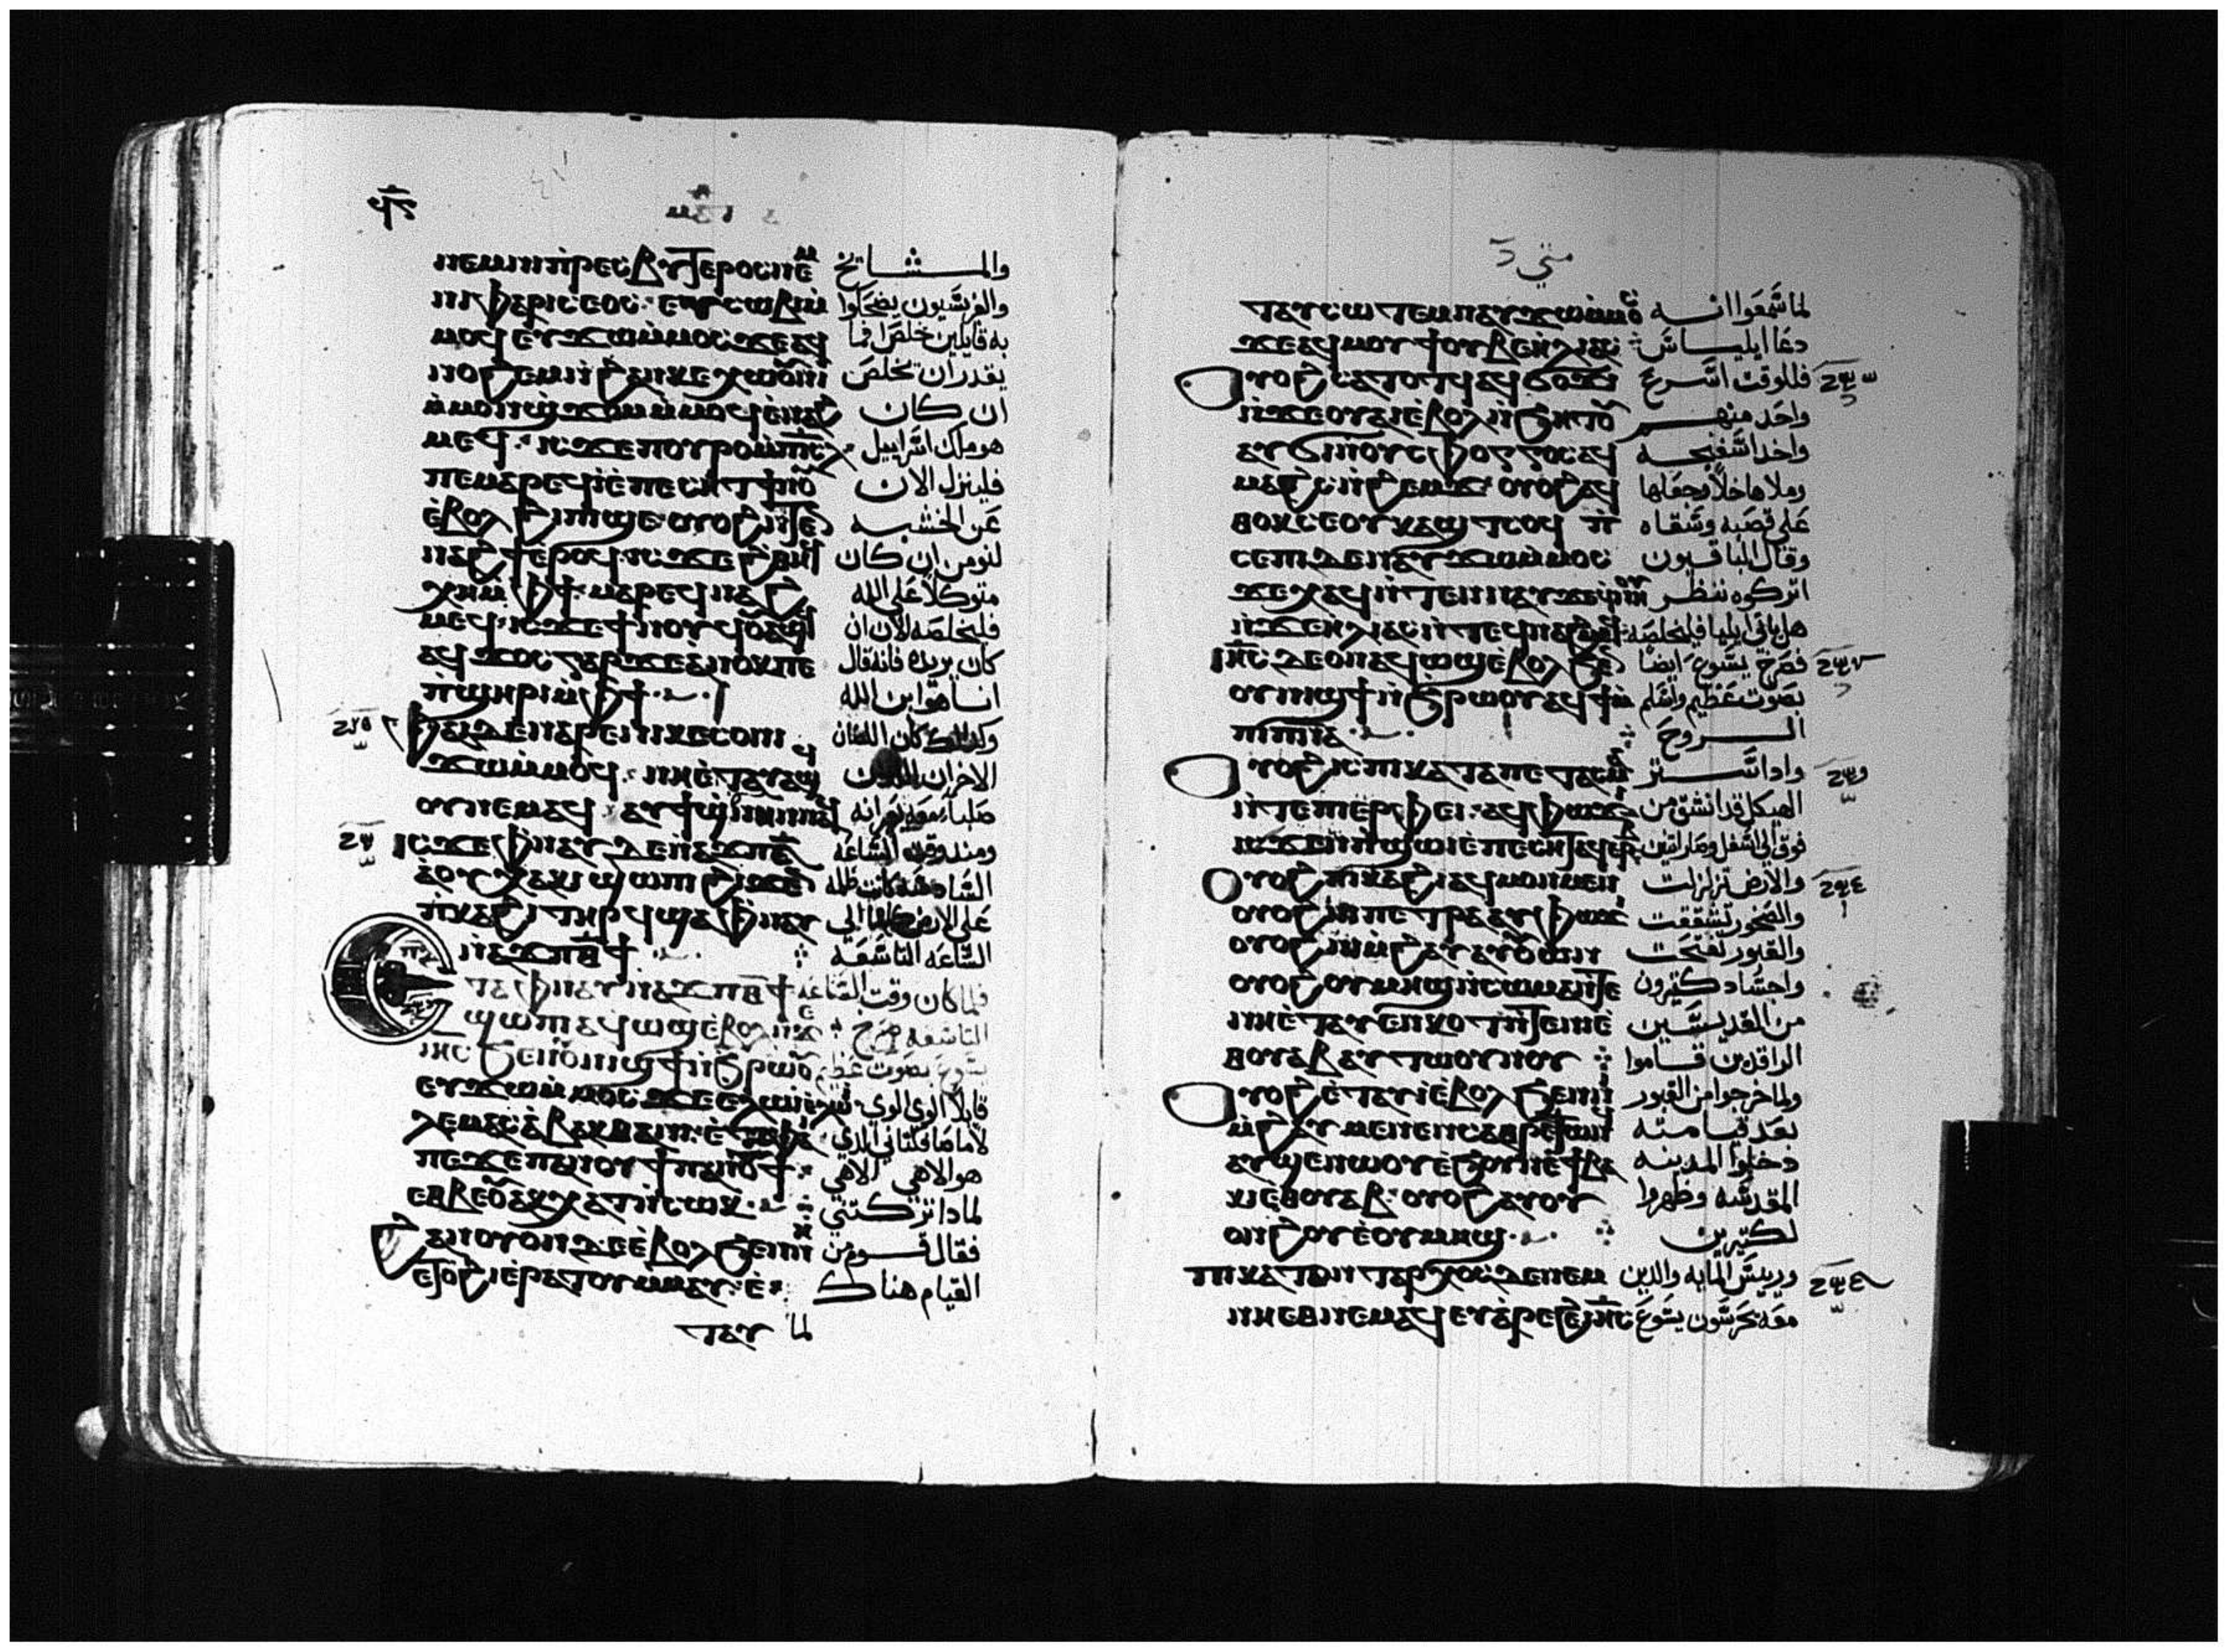 ϥⲋ
ⲛⲉⲙⲛⲓⲡⲣⲉⲥⲃⲩⲧⲉⲣⲟⲥⲛⲉⲙ والمشايخ
ⲛⲓⲫⲁⲣⲓⲥⲉⲟⲥ· ⲉⲩⲥⲱⲃⲓⲙ والفريسيون يضحكوا
ⲙⲟϥ ⲉⲩϫⲱⲙⲙⲟⲥ ϫⲉⲁϥ به قايلين خلص اخرين فما
ⲛⲟϩⲉⲙⲛϩⲁⲛⲕⲉⲭⲱⲟⲩⲛⲓ يقدر ان يخلص
ⲙⲙⲟⲛϣϫⲟⲙⲙⲙⲟϥⲉⲛⲁϩ ان كان
ⲙⲉϥ· ⲓⲥϫⲉⲡⲟⲩⲣⲟⲙⲡⲓⲥⲗ هو ملك اسراييل
ⲡⲉⲙⲁⲣⲉϥⲓⲉⲡⲉⲥⲏⲧϯⲛⲟⲩ فلينزل الان
ⲉⲃⲟⲗϩⲓⲡⲓϣⲉ ⲟⲩⲟϩⲛⲧⲉⲛ عن الخشبه
ⲛⲁϩϯⲉⲣⲟϥ· ⲓⲥϫⲉϩⲑⲏϥ لنومن ان كان
ⲭⲏⲙⲫϯ· ⲙⲁⲣⲉϥⲛⲁϩ متوكلا على الله
ⲙⲉϥ· ⲓⲥϫⲉϥⲟⲩⲁϣϥ فليخلصه الان ان
ⲁϥϫⲟⲥⲅⲁⲣϫⲉⲁⲛⲟⲕⲡⲉ كان يريده فانه قال
ⲡϣⲏⲣⲓⲙⲫϯ انا هو ابن الله
ⲫⲁⲓⲇⲉⲛⲁⲣⲉⲛⲓⲕⲉⲥⲟⲛⲓ وكذلك كان اللصان
ϫⲱⲙⲙⲟϥ· ⲛⲏⲉⲧⲁⲩⲁϣ الاخران اللذين
ⲟⲩⲛⲉⲙⲁϥ ⲁⲩϯϣ صلبا معه يعيرانه
ⲓⲥϫⲉⲫⲛⲁⲩ ⲇⲉⲛⲁϫⲡⲋ ومند وقت الساعه
ⲁⲟⲩⲭⲁⲕⲓϣⲱⲡⲓϩⲓϫⲉⲛ السادسه كانت ظلمه
ⲡⲕⲁϩⲓⲧⲏⲣϥϣⲁⲫⲛⲁⲩ على الارض كلها الى
ⲛⲁϫⲡⲑϯ الساعه التاسعه
ⲧⲁⲫⲛⲁⲩⲛⲁϫⲡⲑϯ فلما كان وقت الساعه
ϣⲱⲡⲓ ⲁϥⲱϣⲉⲃⲟⲗ التاسعه صرخ
ⲓⲏⲥ ϧⲉⲛⲟⲩⲛⲓϣϯⲛϧⲣⲱⲟⲩ يسوع بصوت عظيم
ⲉⲩϫⲱⲙⲙⲟⲥϫⲉⲉⲗⲱⲓⲉⲗⲱⲓ قايلا الوي الوي
ⲗⲉⲙⲁⲥⲁⲃⲁⲕⲑⲁⲛⲓ· ⲉⲧⲉⲫⲁⲓ لاما صافختاني الدي
ⲡⲉϫⲉⲡⲁⲛⲟⲩϯⲡⲁⲛⲟⲩϯ هو الاهي الاهي
ⲉⲑⲃⲉⲟⲩⲁⲕⲭⲁⲧⲛⲥⲱⲕ لمادا تركتني
ϩⲁⲛⲟⲩⲟⲛⲇⲉⲉⲃⲟⲗϧⲉⲛⲛⲏ فقال قوم من
ⲉⲧⲟϩⲓⲉⲣⲁⲧⲟⲩⲙⲙⲁⲩ القيام هناك
ⲧⲁⲩ لما
متى
ⲧⲁⲩⲥⲱⲧⲉⲙⲛⲁⲩϫⲱⲙⲙⲟⲥ لما سمعوا انه
ϫⲉⲁϥⲙⲟⲩϯⲟⲩⲃⲉⲏⲗⲓⲁⲥ دعا ايلياس
ⲟⲩⲟϩ ⲥⲁⲧⲟⲧϥⲁϥϭⲟϫⲓ فللوقت اسرع
ⲛϫⲉⲟⲩⲁⲓⲉⲃⲟⲗⲛϧⲏⲧⲟⲩ واحد منهم
ⲁϥϭⲓⲛⲟⲩⲥⲫⲟⲅⲅⲟⲥⲁϥ واخد اسفنجه
ⲙⲁϩⲥⲛϩⲉⲙϫ· ⲟⲩⲟϩⲁϥ وملاها خلا وجعلها
ⲑⲟⲕⲥⲉⲟⲩⲕⲁϣⲧⲥⲟϥ ⲡ على قصبه وسقاه
ⲥⲉⲡⲓⲇⲉⲛⲁⲩϫⲱⲙⲙⲟⲥ وقال الباقيون
ϫⲉⲭⲁϥⲛⲧⲉⲛⲛⲁⲩϫⲉ اتركوه ننظر
ⲛϫⲉⲏⲗⲓⲁⲥⲛⲧⲉϥⲛⲁϩⲙⲉϥ هل ياتي ايليا فليخلصه
ⲓⲏⲥ ⲇⲉⲟⲛⲁϥⲱϣⲉⲃⲟⲗϧⲉⲛ فصرخ يسوع ايضا
ⲟⲩⲛⲓϣϯⲛϧⲣⲱⲟⲩⲁϥϯⲙ بصوت عظيم واسلم
ⲡⲓⲡⲛⲁ الروح
ⲟⲩⲟϩⲓⲥⲡⲓⲕⲁⲧⲁⲡⲉⲧⲁⲥⲙⲁ وادا ستر
ⲛⲧⲉⲡⲓⲉⲣⲫⲉⲓ· ⲁϥⲫⲱϧ الهيكل قد انشق من
ⲓⲥϫⲉⲛⲡϣⲱⲓⲉⲡⲉⲥⲏⲧⲁϥⲉⲣⲃ فوق الى اسفل وصار اثنين
ⲟⲩⲟϩⲡⲓⲕⲁϩⲓⲁϥⲙⲟⲛⲙⲉⲛ والارض تزلزلت
ⲟⲩⲟϩⲛⲓⲡⲉⲧⲣⲁⲁⲩⲫⲱϧ والصخور تشققت
ⲟⲩⲟϩⲛⲓⲙϩⲁⲩⲁⲩⲟⲩⲱⲛ والقبور تفتحت
ⲟⲩⲟϩⲟⲩⲙⲏϣⲛⲥⲱⲙⲁⲛⲧⲉ واجساد كتيرون
ⲛⲏⲉⲧⲁⲩⲉⲛⲕⲟⲧⲛⲧⲉⲛⲏⲉ من القديسين
ⲑⲟⲩⲁⲃⲁⲩⲧⲱⲟⲩⲛⲟⲩ الراقدين قاموا
ⲟⲩⲟϩⲉⲧⲁⲩⲓⲉⲃⲟⲗϧⲉⲛⲛⲓ ولما خرجوا من القبور
ⲙϩⲁⲩⲙⲉⲛⲉⲛⲥⲁⲑⲣⲉϥⲧⲱⲛϥ بعد قيامته
ⲁⲩϣⲉⲛⲱⲟⲩⲉϧⲟⲩⲛⲉϯⲃⲁ دخلوا المدينه
ⲕⲓⲉⲑⲟⲩⲁⲃ· ⲟⲩⲟϩⲁⲩⲟⲩ المقدسه وظهروا
ⲟⲛϩⲟⲩⲉⲟⲩⲙⲏϣ لكتيرين
ⲡⲓⲕⲁⲧⲟⲛⲧⲁⲣⲭⲟⲥⲇⲉⲛⲉⲙ ورييس المايه والدين
ⲛⲏⲉⲑⲛⲉⲙⲁϥⲉⲩⲁⲣⲉϩⲉⲓⲏⲥ معه يحرسون يسوع